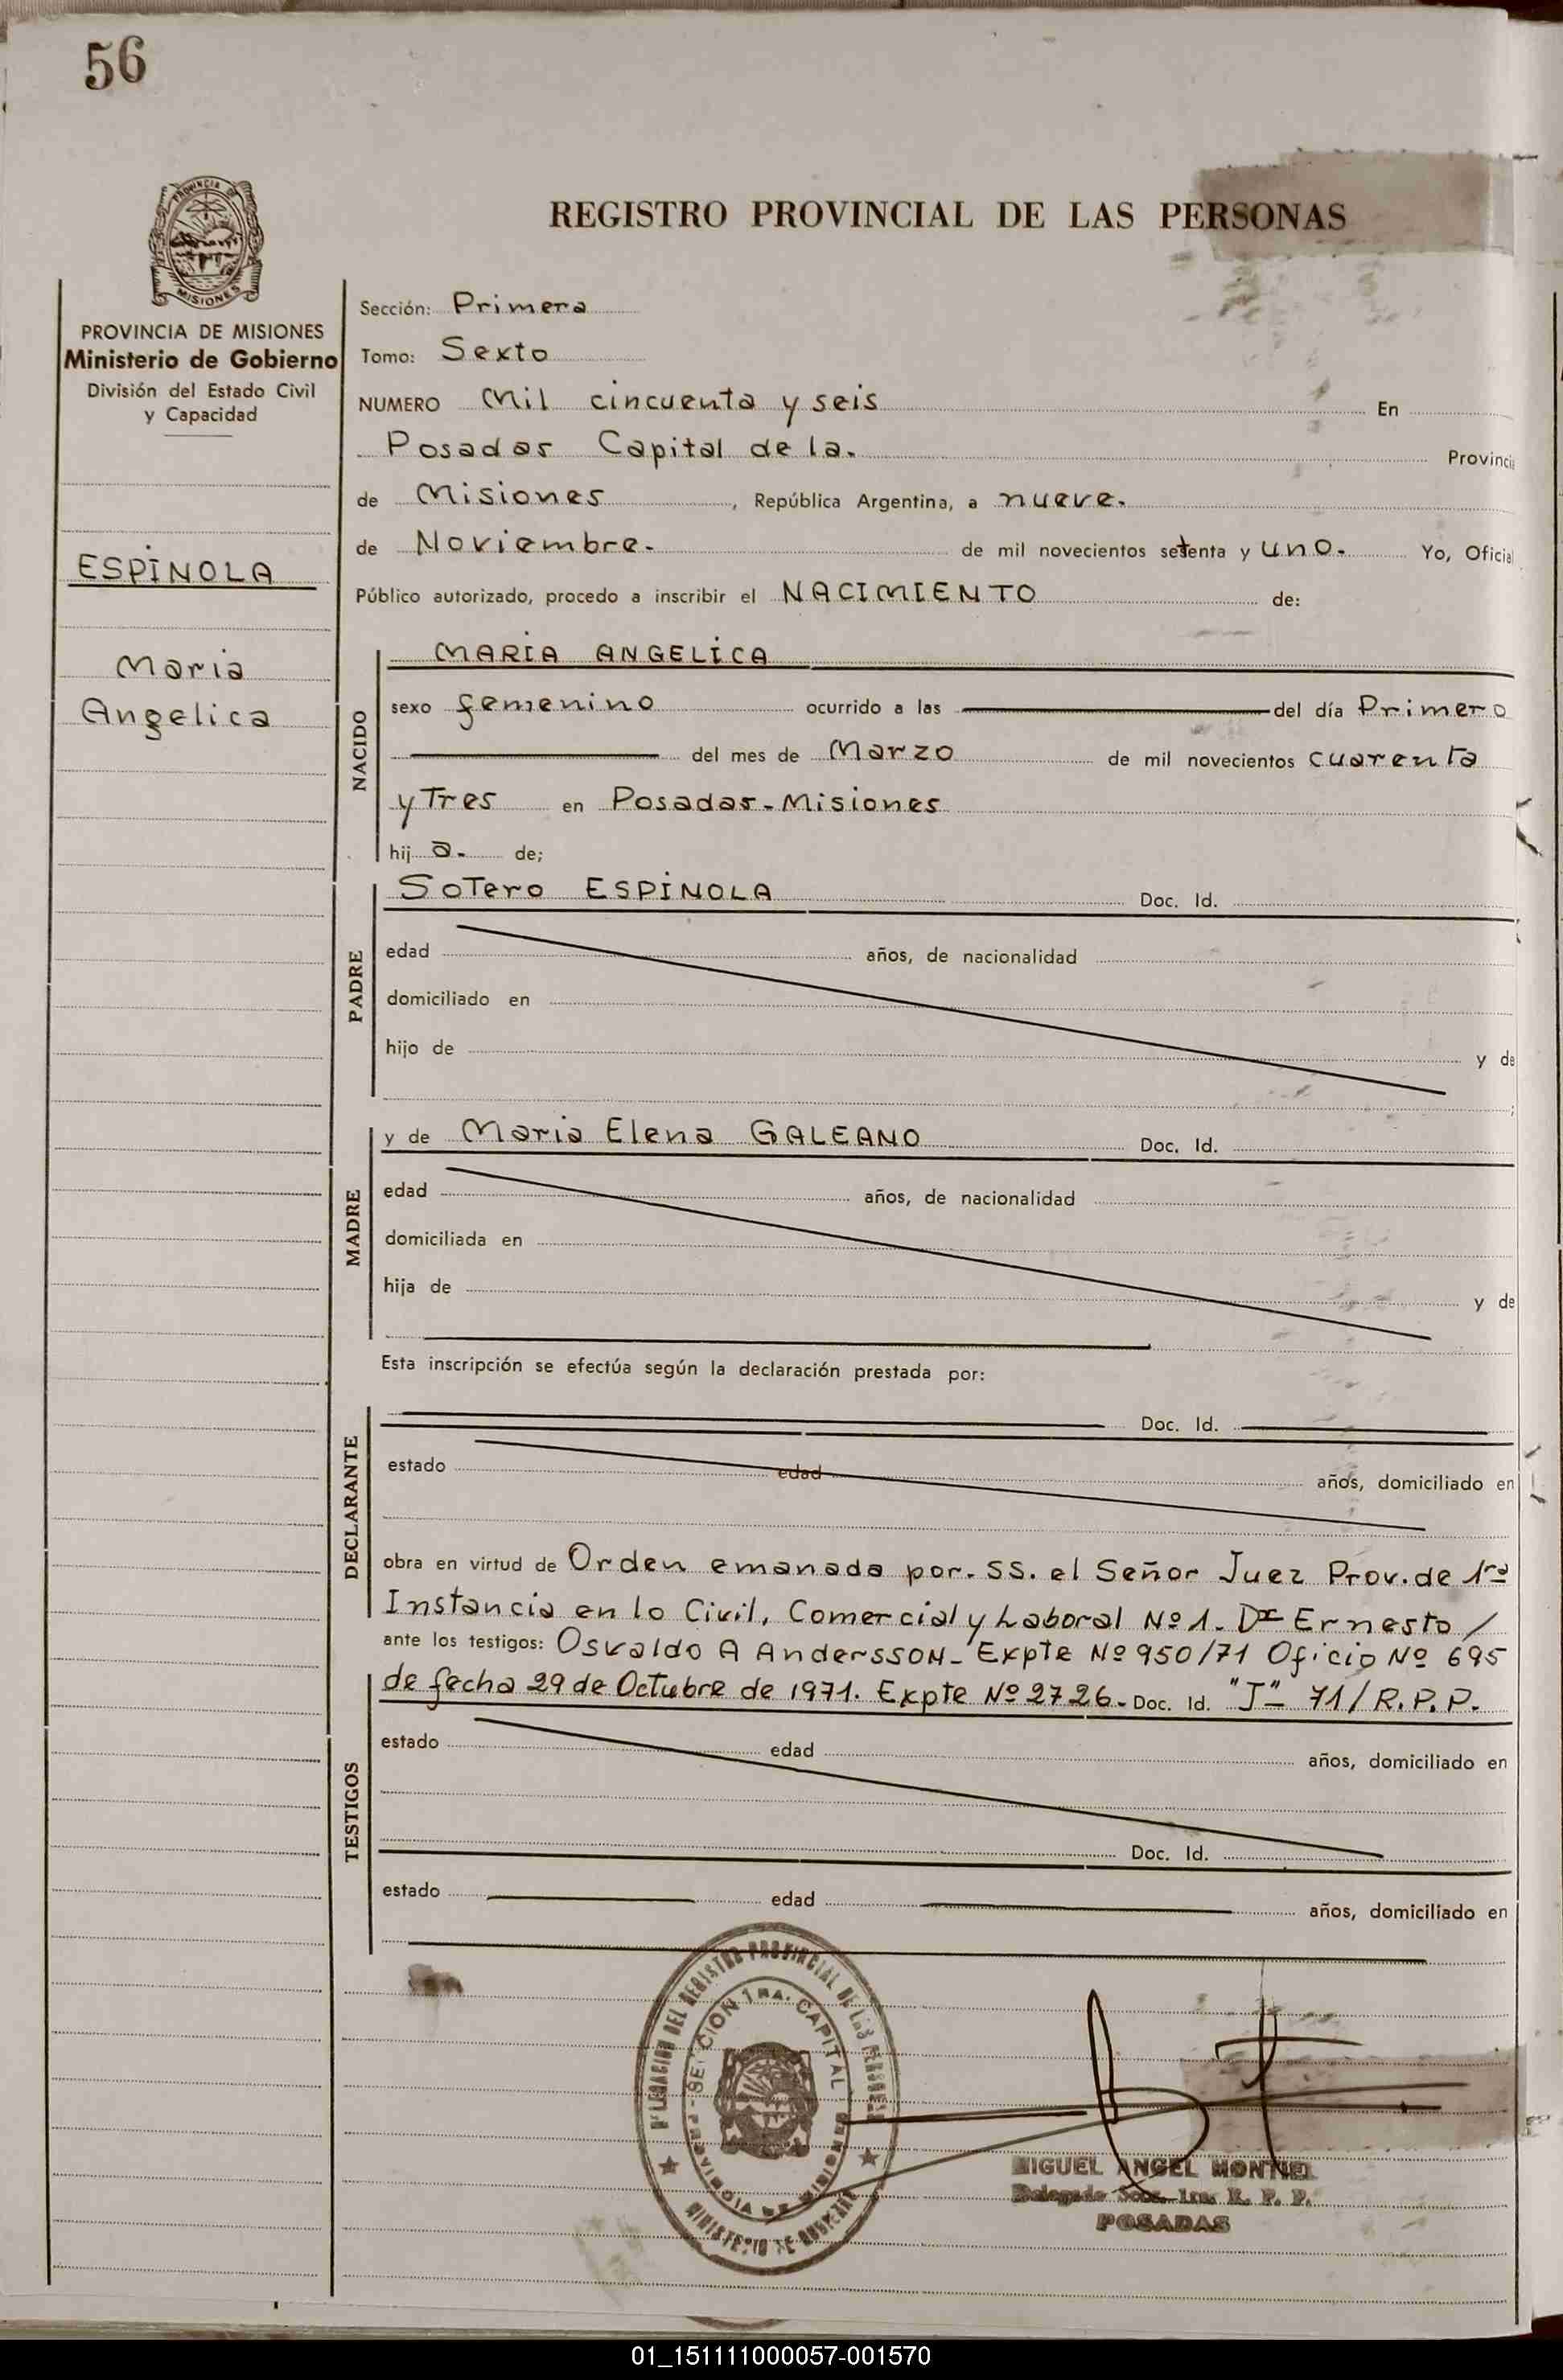 56
PROVINCIA DE
MISIONES
REGISTRO PROVINCIAL DE LAS PERSONAS
PROVINCIA DE MISIONES
Ministerio de Gobierno
División del Estado Civil
y Capacidad
ESPINOLA
Maria
Angelica
Sección: Primera
Tomo: Sexto
NUMERO Mil cincuenta y seis En
Posadas Capital de la. Provincia
de Misiones, República Argentina, a nueve.
de Noviembre. de mil novecientos setenta y uno. Yo, Oficial
Público autorizado, procedo a inscribir el NACIMIENTO de:
NACIDO
MARIA ANGELICA
sexo femenino ocurrido a las del día Primero
del mes de Marzo de mil novecientos cuarenta
y Tres en Posadas-Misiones
hij a. de;
PADRE
Sotero ESPINOLA Doc. Id.
edad años, de nacionalidad
domiciliado en
hijo de y de
;
MADRE
y de Maria Elena GALEANO Doc. Id.
edad años, de nacionalidad
domiciliada en
hija de y de
Esta inscripción se efectúa según la declaración prestada por:
DECLARANTE
Doc. Id.
estado edad años, domiciliado en
obra en virtud de Orden emanada por. SS. el Señor Juez Prov. de 1ra
Instancia en lo Civil, Comercial y Laboral Nº 1. Dr Ernesto /
ante los testigos: Osvaldo A Andersson- Expte Nº 950/71 Oficio Nº 695
de fecha 29 de Octubre de 1971. Expte Nº 2726- Doc. Id. "J" 71/R.P.P.
TESTIGOS
estado edad años, domiciliado en
Doc. Id.
estado edad años, domiciliado en
DELEGACION DEL REGISTRO PROVINCIAL DE LAS PERSONAS
SECCION 1RA. CAPITAL
PROVINCIA DE MISIONES
MINISTERIO DE GOBIERNO
MIGUEL ANGEL MONTIEL
Delegado Secc. 1ra. R. P. P.
POSADAS
01_151111000057-001570